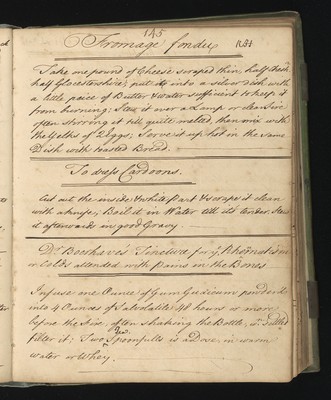 145
Fromage fondée
Take one pound of Cheese scraped thin, half Chesh.
half Glocestershire; put it into a silver dish with
a little peice of Butter & water sufficient to keep it
from burning; Stew it over a Lamp or clear fire
often stirring it till quite melted, then mix with
the Yelks of 2 Eggs; Serve it up hot in the same
Dish with toasted Bread.
To dress Cardoons.
Cut out the inside & white Part & scrape it clean
with a knife; Boil it in Water till its tender, Stew
it afterwards in good Gravy.
Dr. Boerhave's Tincture for ye Rheumatism
or Colds attended with pains in the Bones
Infuse one Ounce of Gum Guaicum powder'd
into 4 Ounces of Sal volatile 48 hours or more
before the fire, often shaking the Bottle,
filter it; Two Tea Spoonfulls is a dose, in warm
water or Whey.